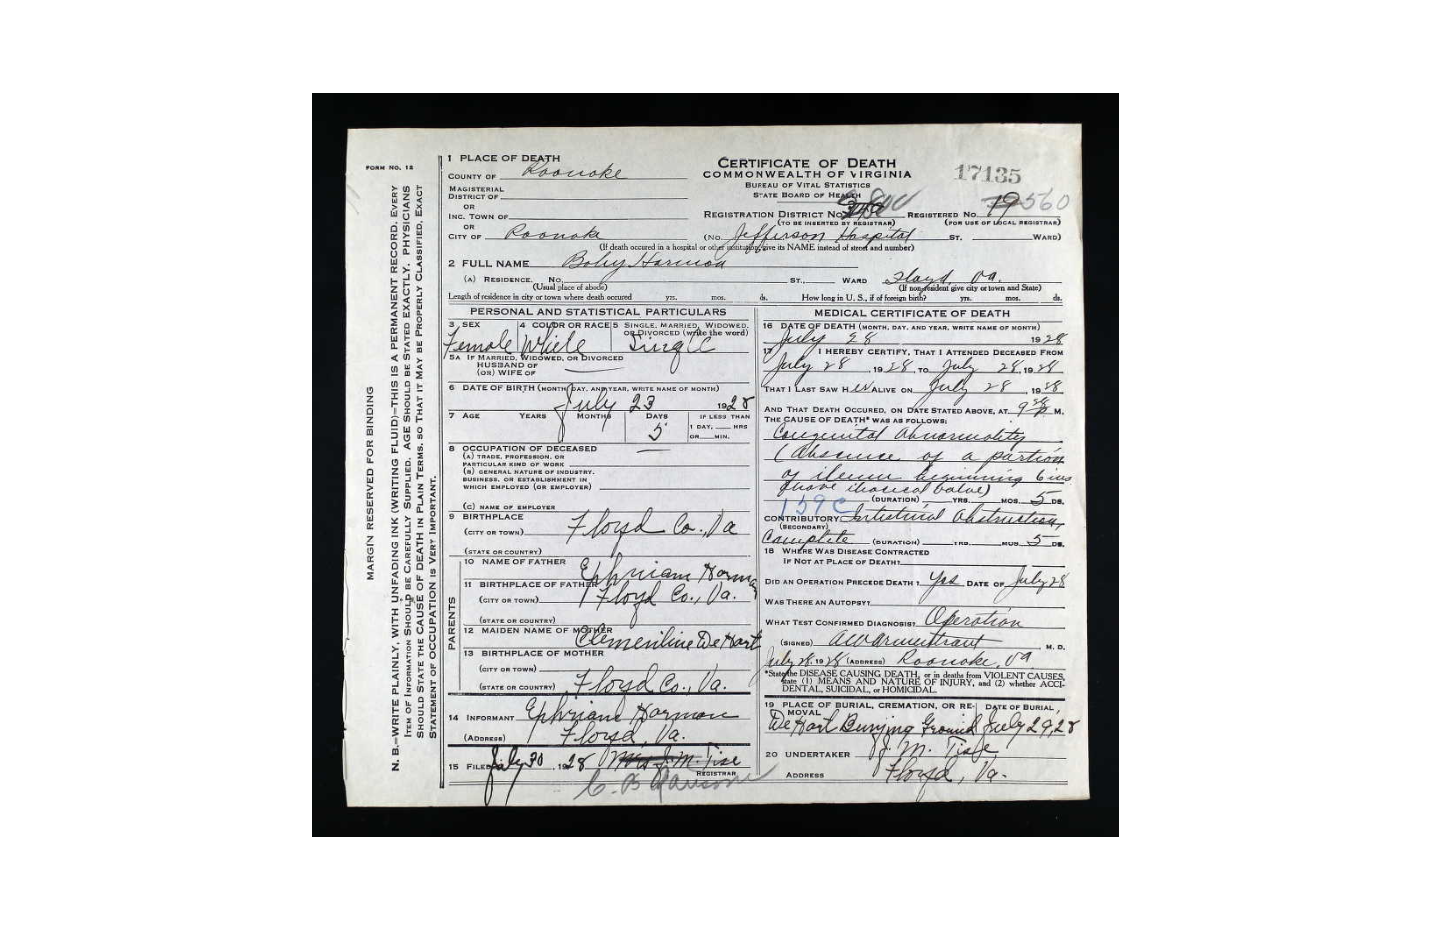 FORM NO. 12
MARGIN RESERVED FOR BINDING
N. B.—WRITE PLAINLY, WITH UNFADING INK (WRITING FLUID)—THIS IS A PERMANENT RECORD. EVERY
ITEM OF INFORMATION SHOULD BE CAREFULLY SUPPLIED. AGE SHOULD BE STATED EXACTLY. PHYSICIANS
SHOULD STATE THE CAUSE OF DEATH IN PLAIN TERMS, SO THAT IT MAY BE PROPERLY CLASSIFIED. EXACT
STATEMENT OF OCCUPATION IS VERY IMPORTANT.
1 PLACE OF DEATH
COUNTY OF Roanoke
MAGISTERIAL
DISTRICT OF
OR
INC. TOWN OF
OR
CITY OF Roanoke
CERTIFICATE OF DEATH
COMMONWEALTH OF VIRGINIA
BUREAU OF VITAL STATISTICS
STATE BOARD OF HEALTH
17135
REGISTRATION DISTRICT NO. REGISTERED NO. 19 560
(TO BE INSERTED BY REGISTRAR) (FOR USE OF LOCAL REGISTRAR)
(No. Jefferson Hospital ST. WARD)
(If death occured in a hospital or other institution, give its NAME instead of street and number)
2 FULL NAME Harmon
(A) RESIDENCE. No. ST., WARD Floyd, Va.
(Usual place of abode) (If non-resident give city or town and State)
Length of residence in city or town where death occured yrs. mos. ds. How long in U. S., if of foreign birth? yrs. mos. ds.
PERSONAL AND STATISTICAL PARTICULARS
3 SEX Female
4 COLOR OR RACE White
5 SINGLE, MARRIED, WIDOWED, OR DIVORCED (write the word) Single
5A IF MARRIED, WIDOWED, OR DIVORCED
HUSBAND OF
(OR) WIFE OF
6 DATE OF BIRTH (MONTH, DAY, AND YEAR, WRITE NAME OF MONTH)
July 23 1928
7 AGE YEARS MONTHS DAYS 5 IF LESS THAN
1 DAY, HRS
OR MIN.
8 OCCUPATION OF DECEASED
(A) TRADE, PROFESSION, OR
PARTICULAR KIND OF WORK
(B) GENERAL NATURE OF INDUSTRY,
BUSINESS, OR ESTABLISHMENT IN
WHICH EMPLOYED (OR EMPLOYER)
(C) NAME OF EMPLOYER
9 BIRTHPLACE
(CITY OR TOWN) Floyd Co., Va
(STATE OR COUNTRY)
PARENTS
10 NAME OF FATHER Ephriam Harmon
11 BIRTHPLACE OF FATHER
(CITY OR TOWN) Floyd Co., Va.
(STATE OR COUNTRY)
12 MAIDEN NAME OF MOTHER Clementine DeHart
13 BIRTHPLACE OF MOTHER
(CITY OR TOWN)
(STATE OR COUNTRY) Floyd Co., Va.
14 INFORMANT Ephriam Harmon
(ADDRESS) Floyd, Va.
15 FILED July 30, 1928 Mrs J. M. Tise
REGISTRAR
C. B. Ransone
MEDICAL CERTIFICATE OF DEATH
16 DATE OF DEATH (MONTH, DAY, AND YEAR, WRITE NAME OF MONTH)
July 28 1928
17 I HEREBY CERTIFY, THAT I ATTENDED DECEASED FROM
July 28, 1928 TO July 28, 1928
THAT I LAST SAW HER ALIVE ON July 28, 1928
AND THAT DEATH OCCURED, ON DATE STATED ABOVE, AT 9 P M.
THE CAUSE OF DEATH* WAS AS FOLLOWS:
Congenital Abnormality
(Absence of a portion
of ileum beginning 6 ins
above ileocecal valve)
(DURATION) YRS. MOS. 5 DS.
159C
CONTRIBUTORY Intestinal Obstruction,
(SECONDARY)
Complete (DURATION) YRS. MOS. 5 DS.
18 WHERE WAS DISEASE CONTRACTED
IF NOT AT PLACE OF DEATH?
DID AN OPERATION PRECEDE DEATH? Yes DATE OF July 28
WAS THERE AN AUTOPSY?
WHAT TEST CONFIRMED DIAGNOSIS? Operation
(SIGNED) M. D.
July 28, 1928 (ADDRESS) Roanoke, Va
*State the DISEASE CAUSING DEATH, or in deaths from VIOLENT CAUSES,
state (1) MEANS AND NATURE OF INJURY, and (2) whether ACCI-
DENTAL, SUICIDAL, or HOMICIDAL.
19 PLACE OF BURIAL, CREMATION, OR RE-
MOVAL DATE OF BURIAL,
DeHart Burying Ground July 29, 28
20 UNDERTAKER J. M. Tise
ADDRESS Floyd, Va.